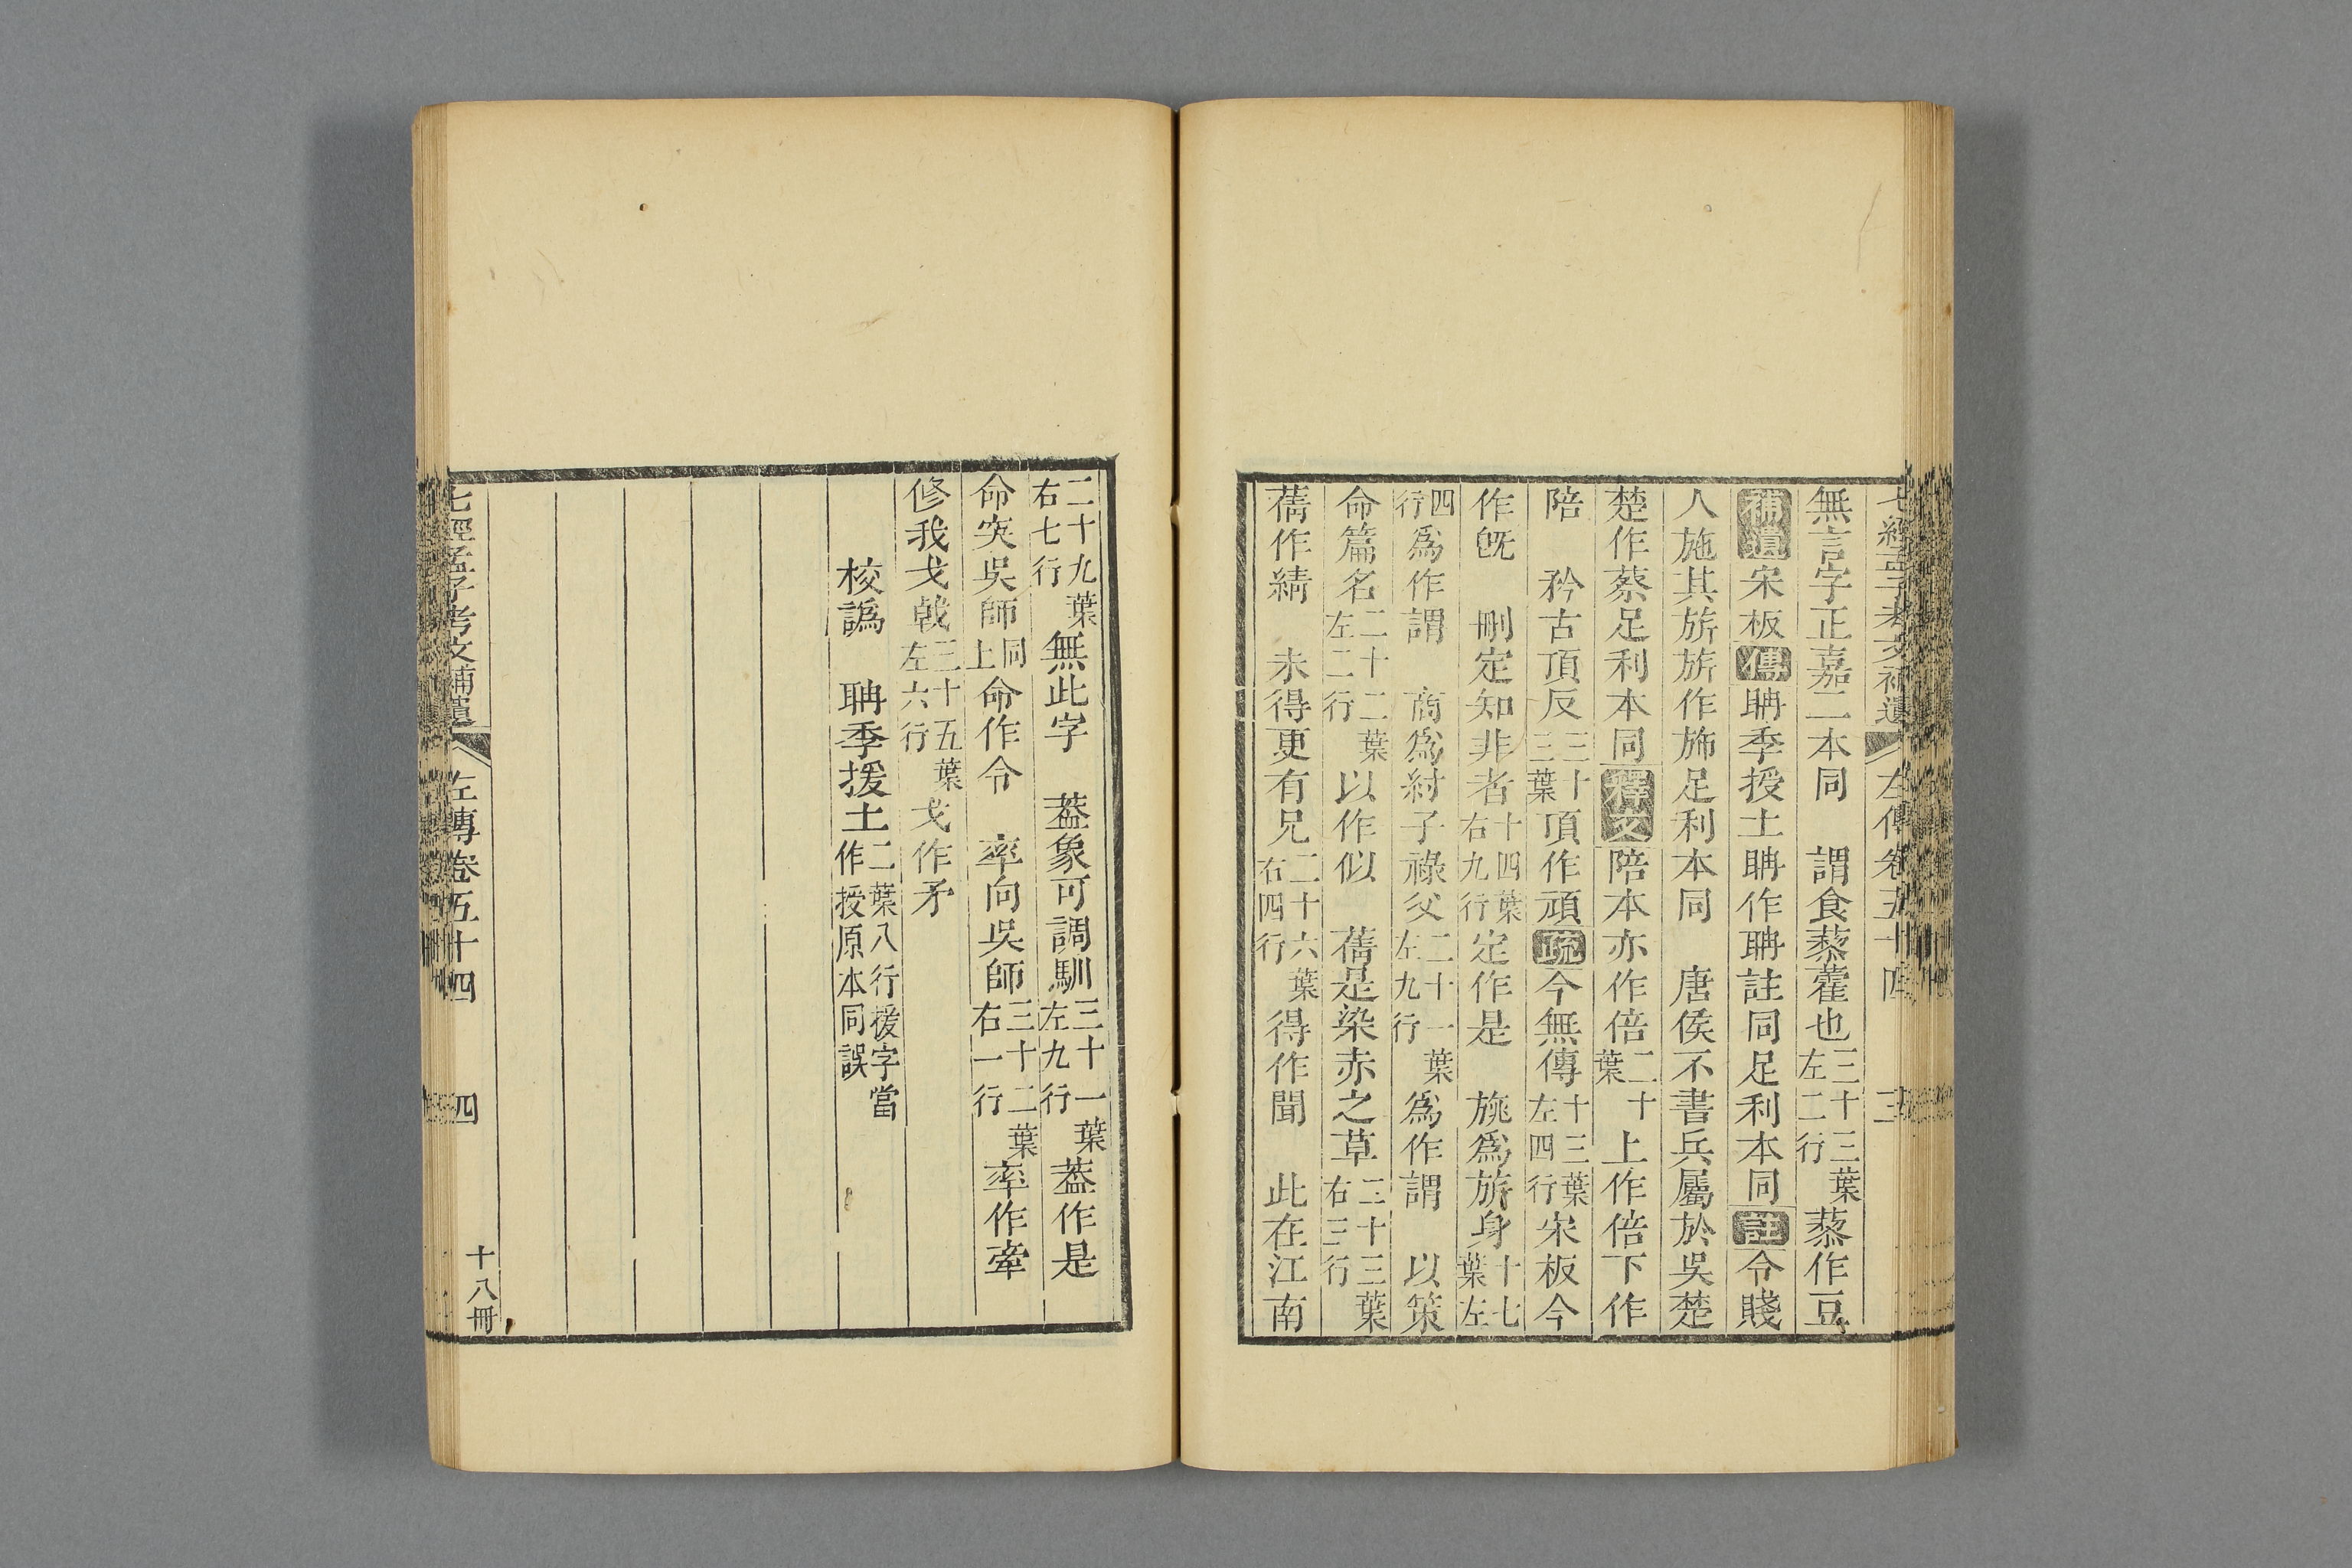 七經孟子考文補遺 左傳卷五十四 三
無言字正嘉二本同　謂食藜藿也三十三葉左二行藜作豆
補遺宋板傳聃季授土聃作聃註同足利本同註令賤
人施其旂旂作旆足利本同　唐侯不書兵屬於吳楚
楚作蔡足利本同釋文陪本亦作倍二十葉上作倍下作
陪　矜古頂反三十三葉頂作頑疏今無傳十三葉左四行宋板今
作旣　刪定知非者十四葉右九行定作是　旒爲旂身十七葉左
四行爲作謂　商爲紂子祿父二十一葉左九行爲作謂　以策
命篇名二十二葉左二行以作似　蒨是染赤之草二十三葉右三行
蒨作綪　未得更有兄二十六葉右四行得作聞　此在江南
二十九葉右七行無此字　葢象可調馴三十一葉左九行葢作是
命突吳師同上命作令　率向吳師三十二葉右一行率作牽
修我戈戟三十五葉左六行戈作矛
校譌　聃季援土二葉八行援字當作授原本同誤
七經孟子考文補遺 左傳卷五十四 四 十八冊